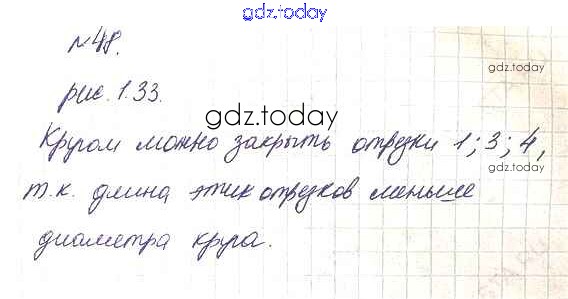 gdz.today
№48.
gdz.today
рис. 1.33.
gdz.today
Кругом можно закрыть отрезки 1; 3; 4,
gdz.today
т.к. длина этих отрезков меньше
диаметра круга.